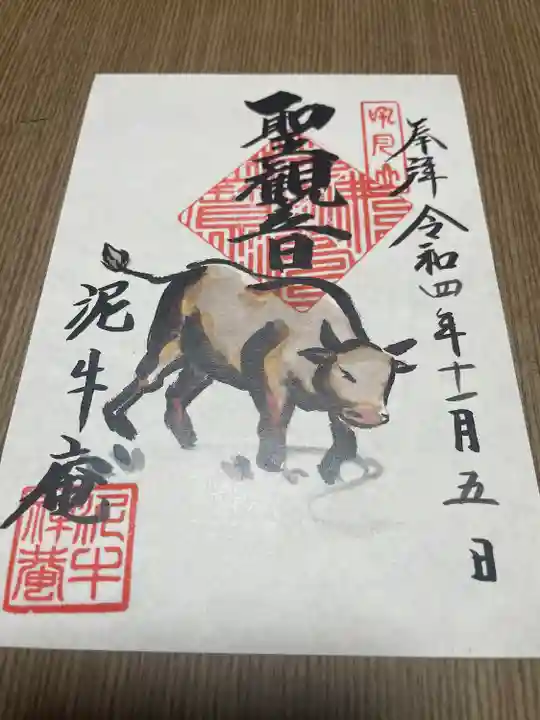 奉拝 令和四年十一月五日
聖観音
泥牛庵